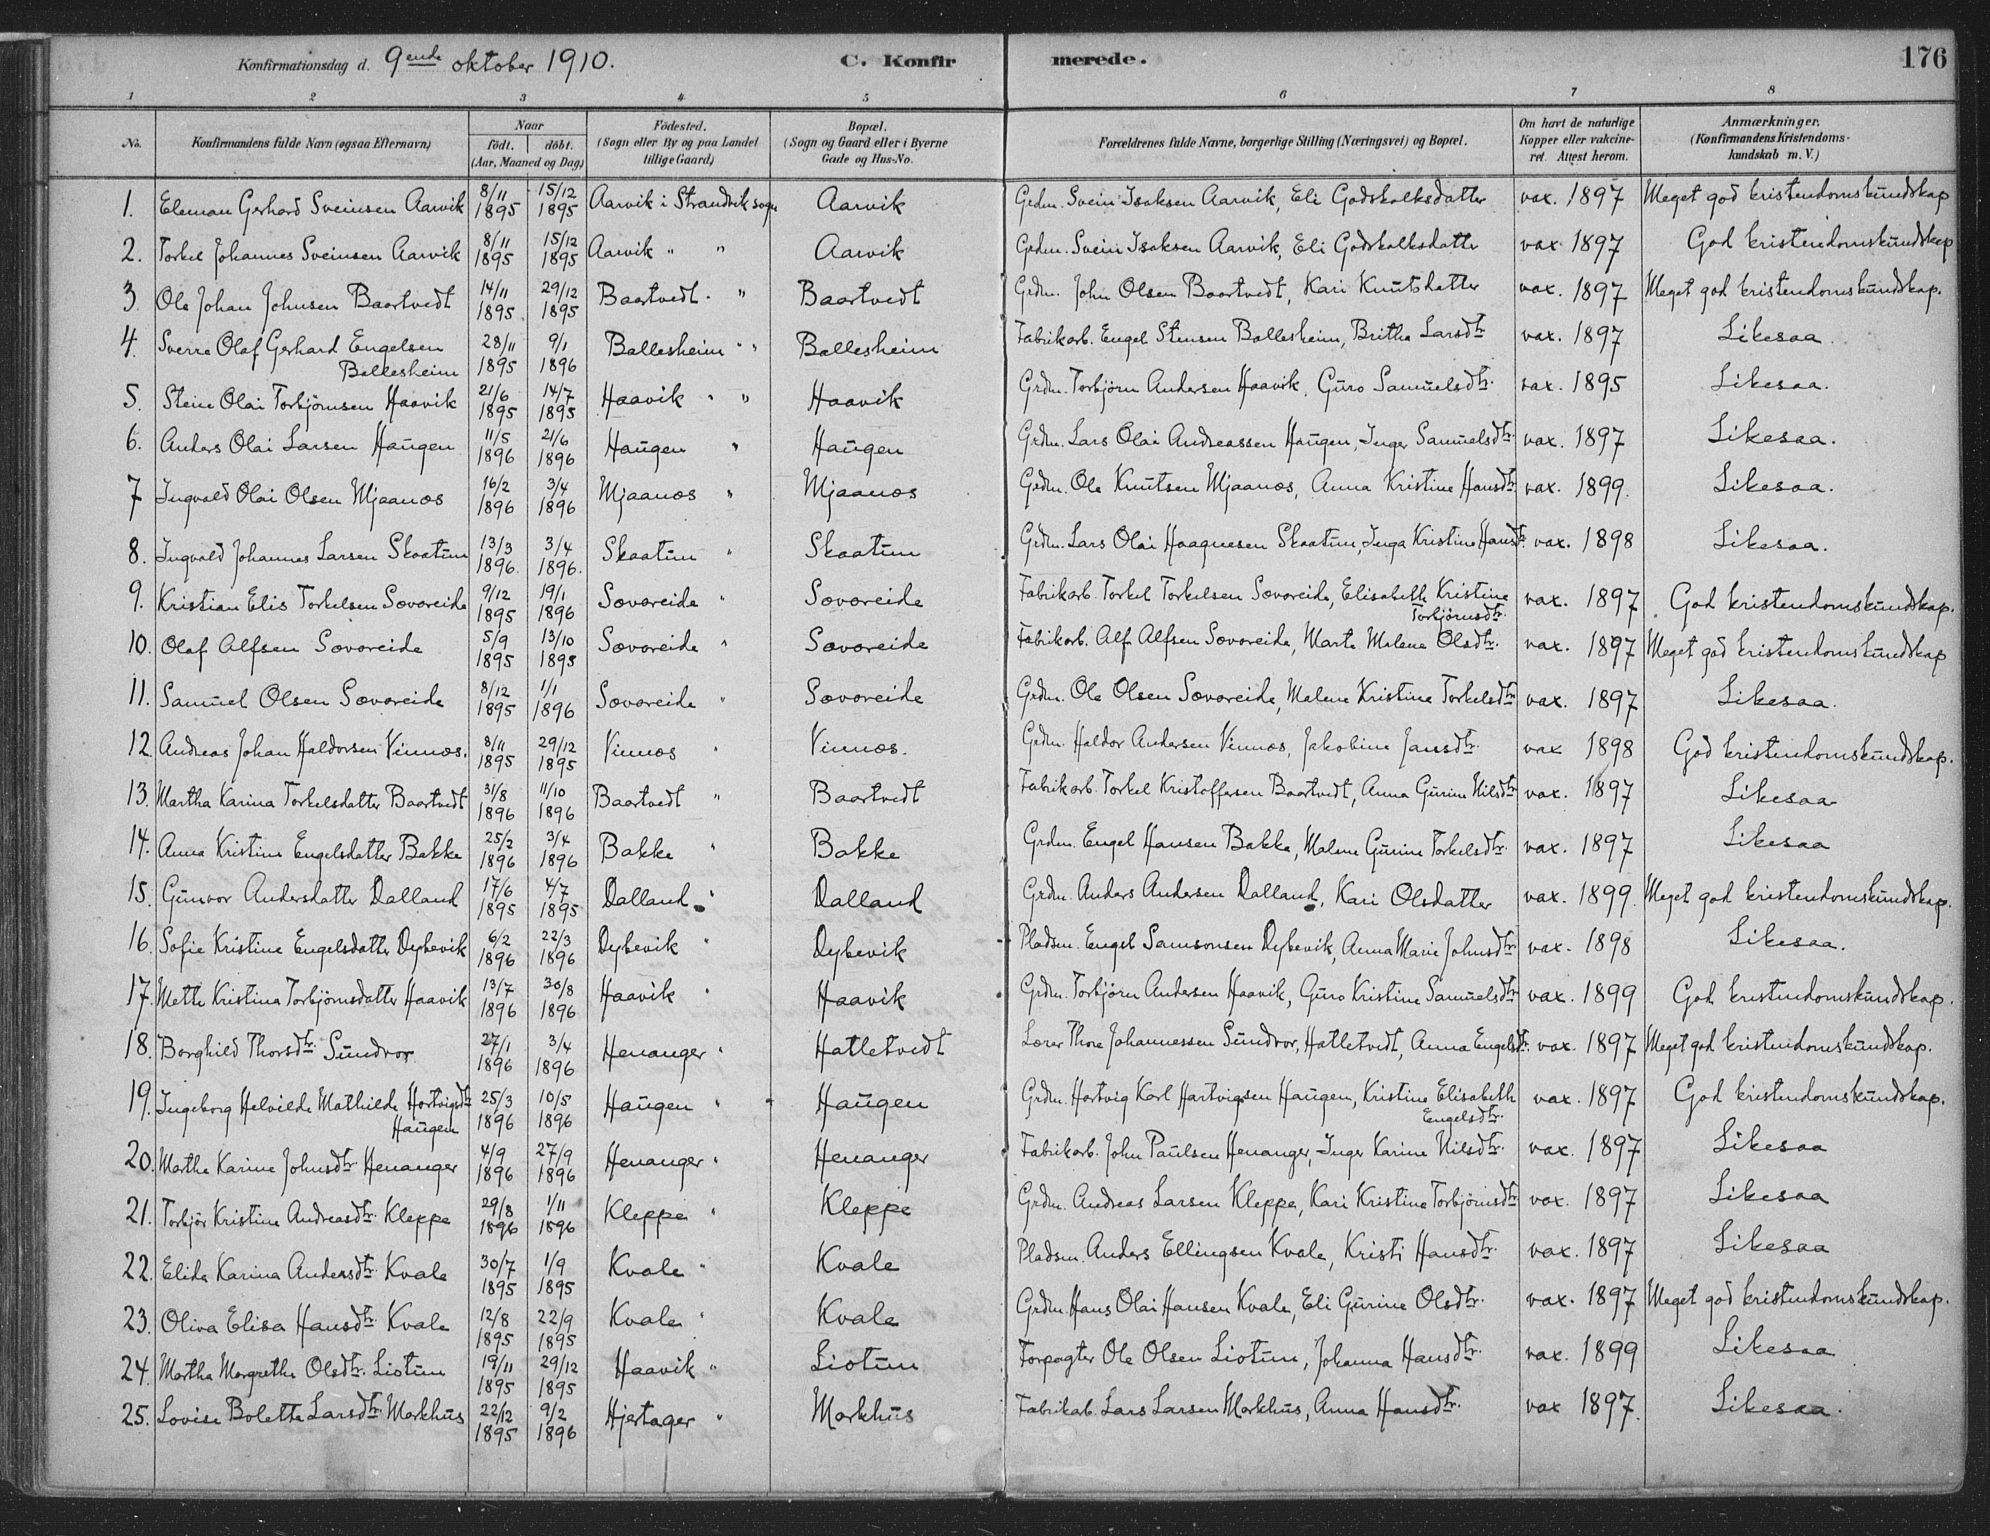 Konfirmationsdag d. 9ende oktober 1910. C. Konfirmerede. 176
1 2 3 4 5 6 7 8
No. Konfirmandens fulde Navn (ogsaa Efternavn) Naar født. døbt. (Aar, Maaned og Dag) Fødested. (Sogn eller By og paa Landet tillige Gaard) Bopæl. (Sogn og Gaard eller i Byerne Gade og Hus-No. Forældrenes fulde Navne, borgerlige Stilling (Næringsvei) og Bopæl. Om havt de naturlige Kopper eller vakcineret. Attest herom. Anmærkninger. (Konfirmandens Kristendomskundskab m. V.)
1. Eleman Gerhard Sveinsen Aarvik 8/11 1895 15/12 1895 Aarvik i Strandvik sogn Aarvik Grdm. Svein Isaksen Aarvik, Eli Godskalksdatter vax. 1897 Meget god kristendomskundskap
2. Torkel Johannes Sveinsen Aarvik 8/11 1895 15/12 1895 Aarvik " " Aarvik Grdm. Svein Isaksen Aarvik, Eli Godskalksdatter vax. 1897 God kristendomskundskap
3. Ole Johan Johnsen Baartvedt 14/11 1895 29/12 1895 Baartvedt " Baartvedt Grdm. John Olsen Baartvedt, Kari Knutsdatter vax. 1897 Meget god kristendomskundskap.
4. Sverre Olaf Gerhard Engelsen Ballesheim 28/11 1895 9/1 1896 Ballesheim " " Ballesheim Fabrikarb. Engel Stensen Ballesheim, Britha Larsdtr. vax. 1897 Likesaa
5. Steine Olai Torbjørnsen Haavik 21/6 1895 14/7 1895 Haavik " " Haavik Grdm. Torbjørn Andersen Haavik, Guro Samuelsdtr. vax. 1895 Likesaa.
6. Anders Olai Larsen Haugen 11/5 1896 21/6 1896 Haugen " Haugen Grdm. Lars Olai Andreassen Haugen, Inger Samuelsdtr. vax. 1897 Likesaa.
7 Ingvald Olai Olsen Mjaanøs 16/2 1896 3/4 1896 Mjaanøs " Mjaanøs Grdm. Ole Knutsen Mjaanøs, Anna Kristine Hansdtr. vax. 1899. Likesaa.
8. Ingvald Johannes Larsen Skaatun 13/3 1896. 3/4 1896. Skaatun " Skaatun Grdm. Lars Olai Haagnesen Skaatun, Inga Kristine Hansdtr. vax. 1898 Likesaa.
9. Kristian Elis Torkelsen Sævareide 9/12 1895 19/1 1896 Sævareide " Sævareide Fabrikarb. Torkel Torkelsen Sævareide, Elisabeth Kristine Torbjørnsdtr. vax. 1897 God kristendomskundskap.
10. Olaf Alfsen Sævareide 5/9 1895 13/10 1895 Sævareide " Sævareide Fabrikarb. Alf Alfsen Sævareide, Marte Malene Olsdtr. vax. 1897 Meget god kristendomskundskap
11. Samuel Olsen Sævareide 8/12 1895 1/1 1896 Sævareide " Sævareide Grdm. Ole Olsen Sævareide, Malene Kristine Torkelsdtr. vax. 1897 Likesaa.
12. Andreas Johan Haldorsen Vinnæs. 8/11 1895 29/12 1895 Vinnæs " Vinnæs. Grdm. Haldor Andersen Vinnæs, Jakobine Jansdtr. vax 1898 God kristendomskundskap.
13. Martha Karina Torkelsdatter Baartvedt 31/8 1896 11/10 1896 Baartvedt " Baartvedt Fabrikarb. Torkel Kristoffersen Baartvedt, Anna Gurine Nilsdtr. vax. 1897 Likesaa
14. Anna Kristine Engelsdatter Bakke 25/2 1896 3/4 1896 Bakke " Bakke Grdm. Engel Hansen Bakke, Malene Gurine Torkelsdtr. vax. 1897 Likesaa
15. Gunvor Andersdatter Dalland 17/6 1895 4/7 1895 Dalland " Dalland Grdm. Anders Andersen Dalland, Kari Olsdatter vax. 1899. Meget god kristendomskundskap.
16. Sofie Kristine Engelsdatter Dybevik 6/2 1896 22/3 1896 Dybevik " Dybevik Pladsm. Engel Samsonsen Dybevik, Anna Marie Johnsdtr. vax. 1898 Likesaa.
17. Mette Kristina Torbjørnsdatter Haavik 13/7 1896 30/8 1896 Haavik " Haavik Grdm. Torbjørn Andersen Haavik, Guro Kristine Samuelsdtr. vax. 1899 God kristendomskundskap.
18. Borghild Thorsdtr. Sundvor. 27/1 1896 3/4 1896 Henanger " Hatletvedt Lærer Thore Johannessen Sundvor, Hatletvedt, Anna Engelsdtr. vax. 1897 Meget god kristendomskundskap.
19. Ingeborg Helvilde Mathilde Hartvigsdtr Haugen 25/3 1896 10/5 1896 Haugen " Haugen Grdm. Hartvig Karl Hartvigsen Haugen, Kristine Elisabeth Engelsdtr. vax. 1897 God kristendomskundskap.
20. Marthe Karine Johnsdtr. Henanger 4/9 1896 27/9 1896 Henanger " Henanger Fabrikarb. John Paulsen Henanger, Inger Karine Nilsdtr. vax. 1897 Likesaa
21. Torbjør Kristine Andreasdtr. Kleppe 29/8 1896 1/11 1896 Kleppe " Kleppe Grdm. Andreas Larsen Kleppe, Kari Kristine Torbjørnsdtr. vax. 1897 Likesaa
22. Elida Karina Andersdtr. Kvale 30/7 1895 1/9 1895 Kvale " Kvale Pladsm. Anders Ellingsen Kvale, Kristi Hansdtr. vax. 1897 Likesaa
23. Oliva Elisa Hansdtr. Kvale 12/8 1895 22/9 1895 Kvale " Kvale Grdm. Hans Olai Hansen Kvale, Eli Gurine Olsdtr. vax. 1897 Meget god kristendomskundskap.
24. Martha Margrethe Olsdtr. Liøtun 19/11 1895 29/12 1895 Haavik " Liøtun Forpagter Ole Olsen Liøtun, Johanna Hansdtr. vax. 1899 Likesaa
25. Lovise Bolette Larsdtr. Markhus 22/12 1895 9/2 1896 Hjertager " Markhus Fabrikarb. Lars Larsen Markhus, Anna Hansdtr. vax 1897. Likesaa.